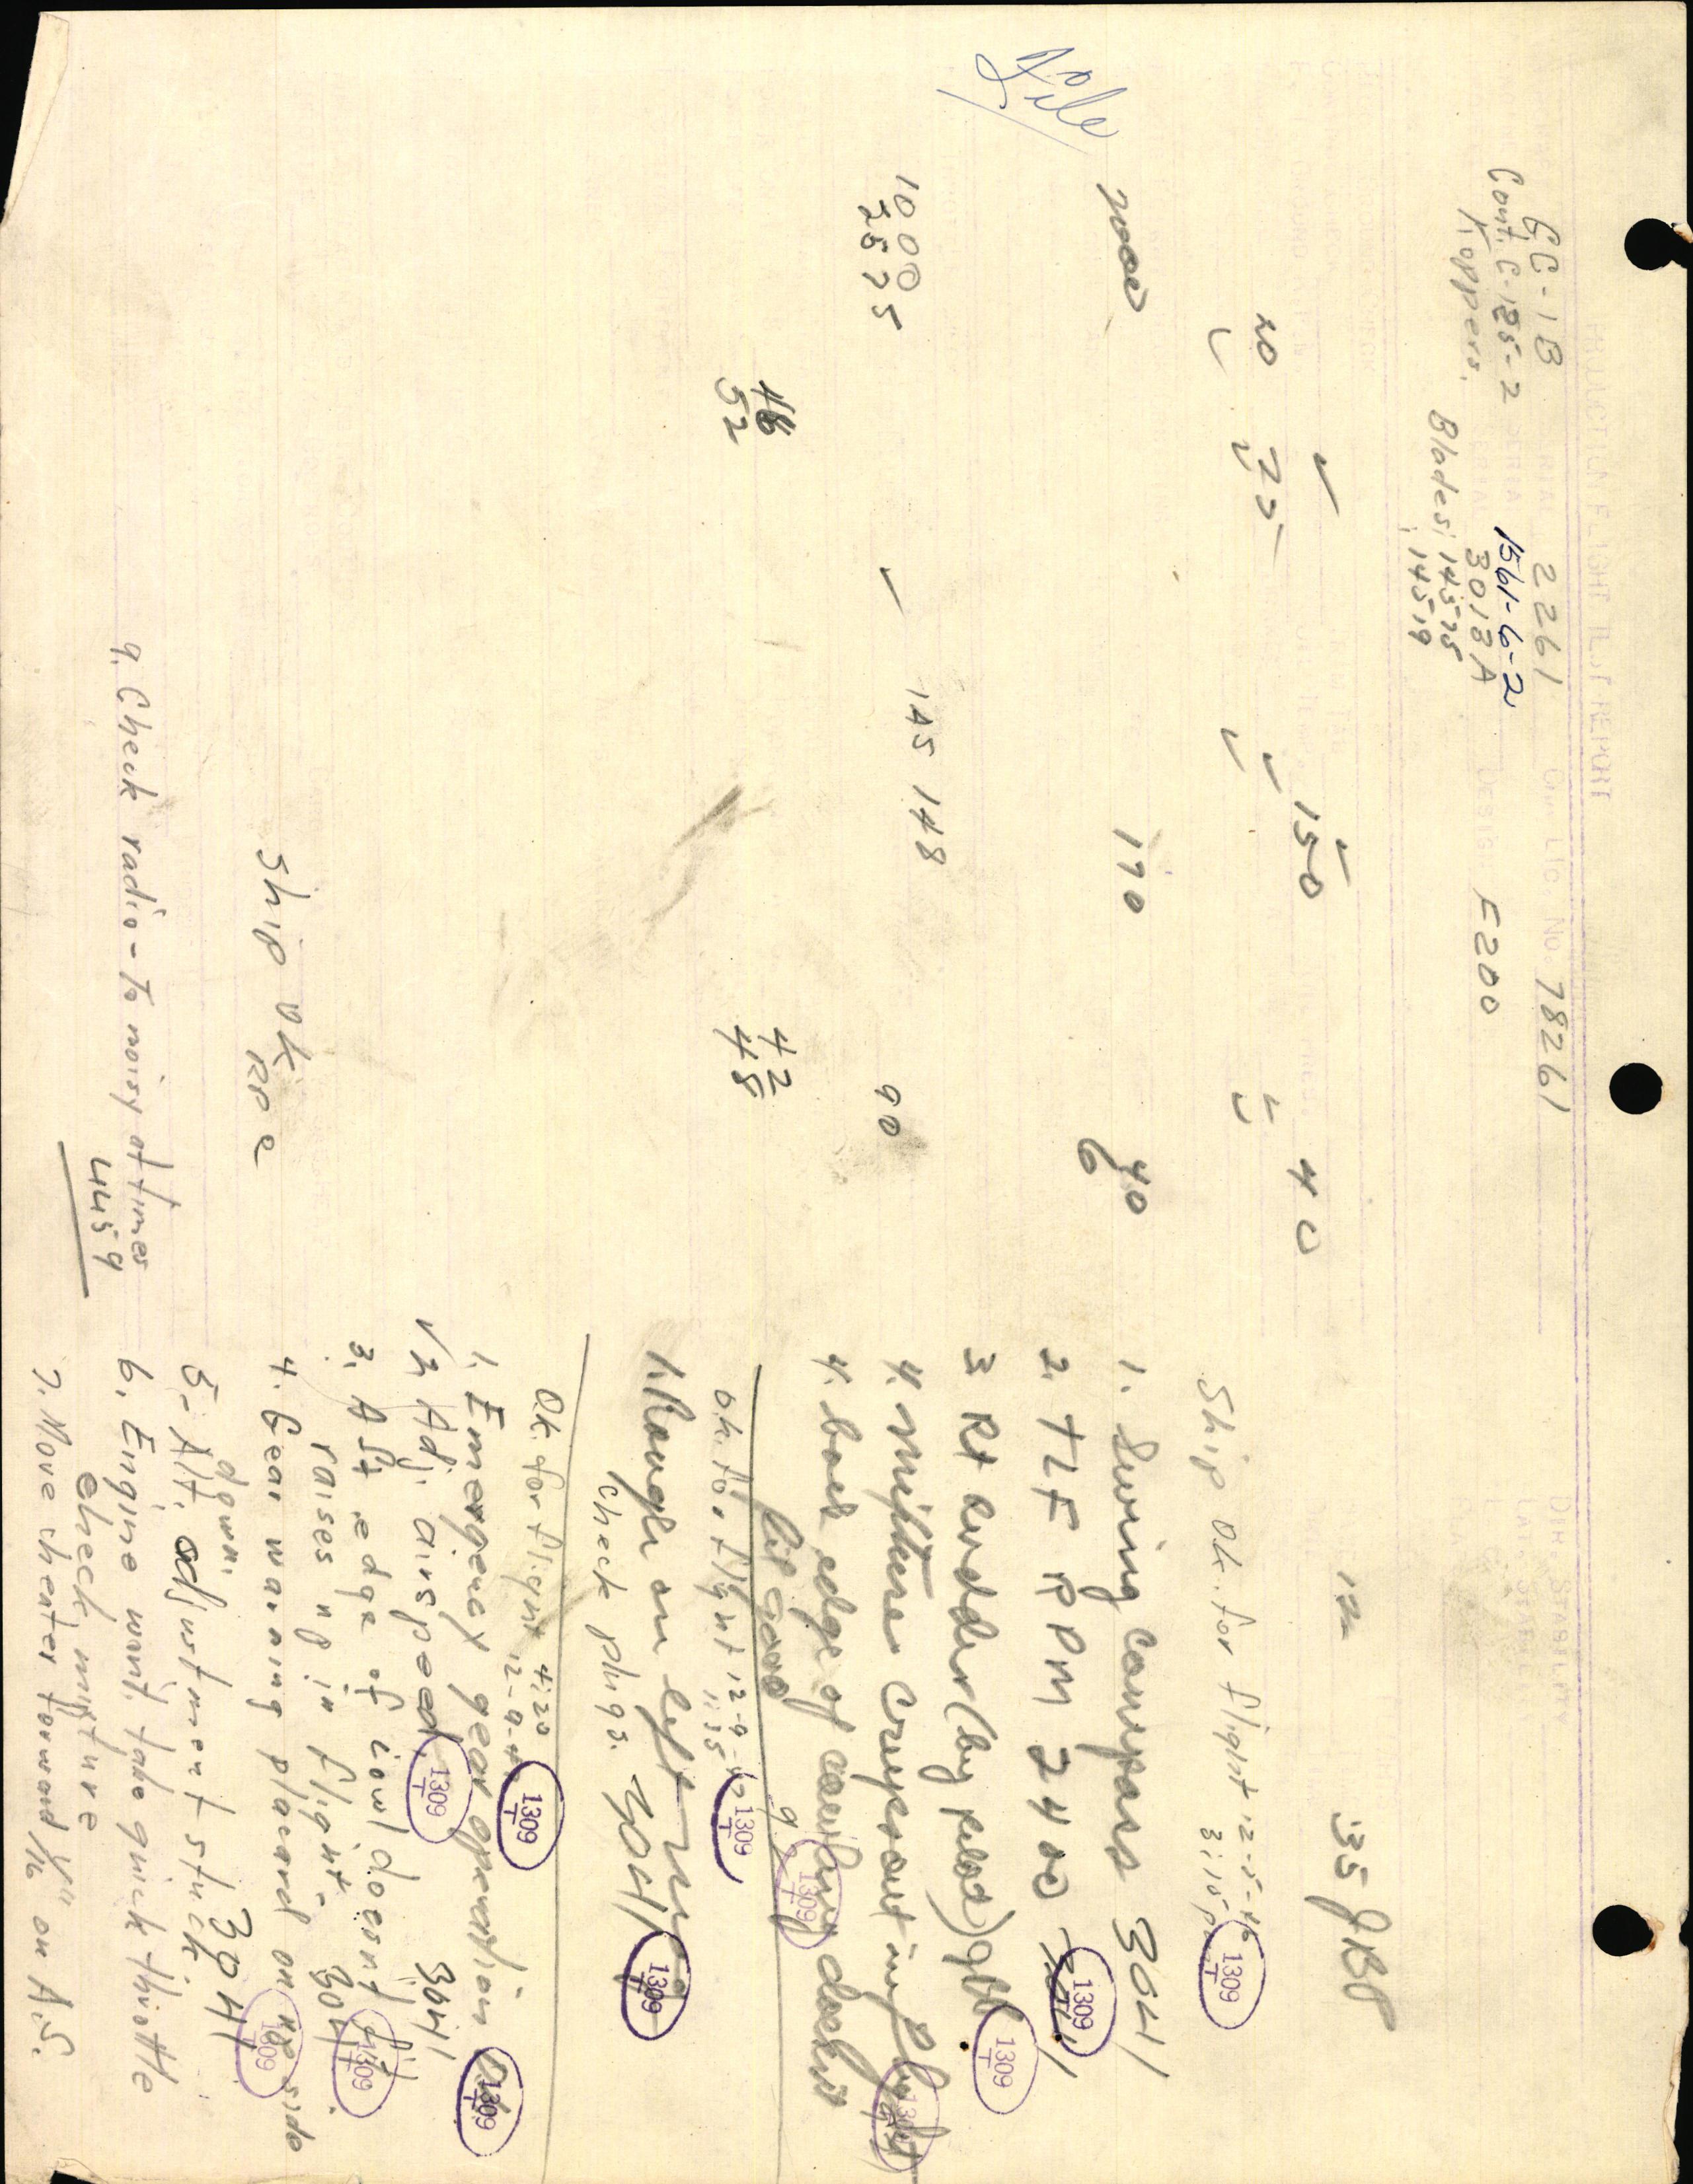 File
PRODUCTION FLIGHT TEST REPORT
GC-1B 2261 LIC. NO. 78261
Cont. C-125-2 1561-6-2
Koppers. 3018A F200
Blades: 14575
14519
150 40 12 35 JBP
20 25
Ship Ok. for flight 12-5-46
3:15 P
1309
T
190 40 1. Swing Compass 3041
6
2. TLF RPM 2400
1309
T
3 Rt rudder (by pilot)
1309
T
1000 145 148 90 4. Mixture creeps out in flight
2575 1309
4. back edge of cowling doesn't
fit good
1309
48 42
52 48
O.K. for flight 12-9-46
1:35
1309
T
1. Rough on left mag
Check plugs. 3041
1309
T
Ok for flight 4:20
12-9-46
1309
T
1. Emergency gear operation
1309
√2 Adj. airspeed. 3041
1309
T
3. Aft edge of cowl doesnt fit.
raises up in flight. 3041
1309
4. Gear warning placard on up side
down.
1309
Ship Ok
5- Alt. adjustment stuck 3041
6. Engine wont take quick throttle
check mixture
7. Move cheater forward 1/16" on A.S.
9. Check radio - To noisy at times
4459